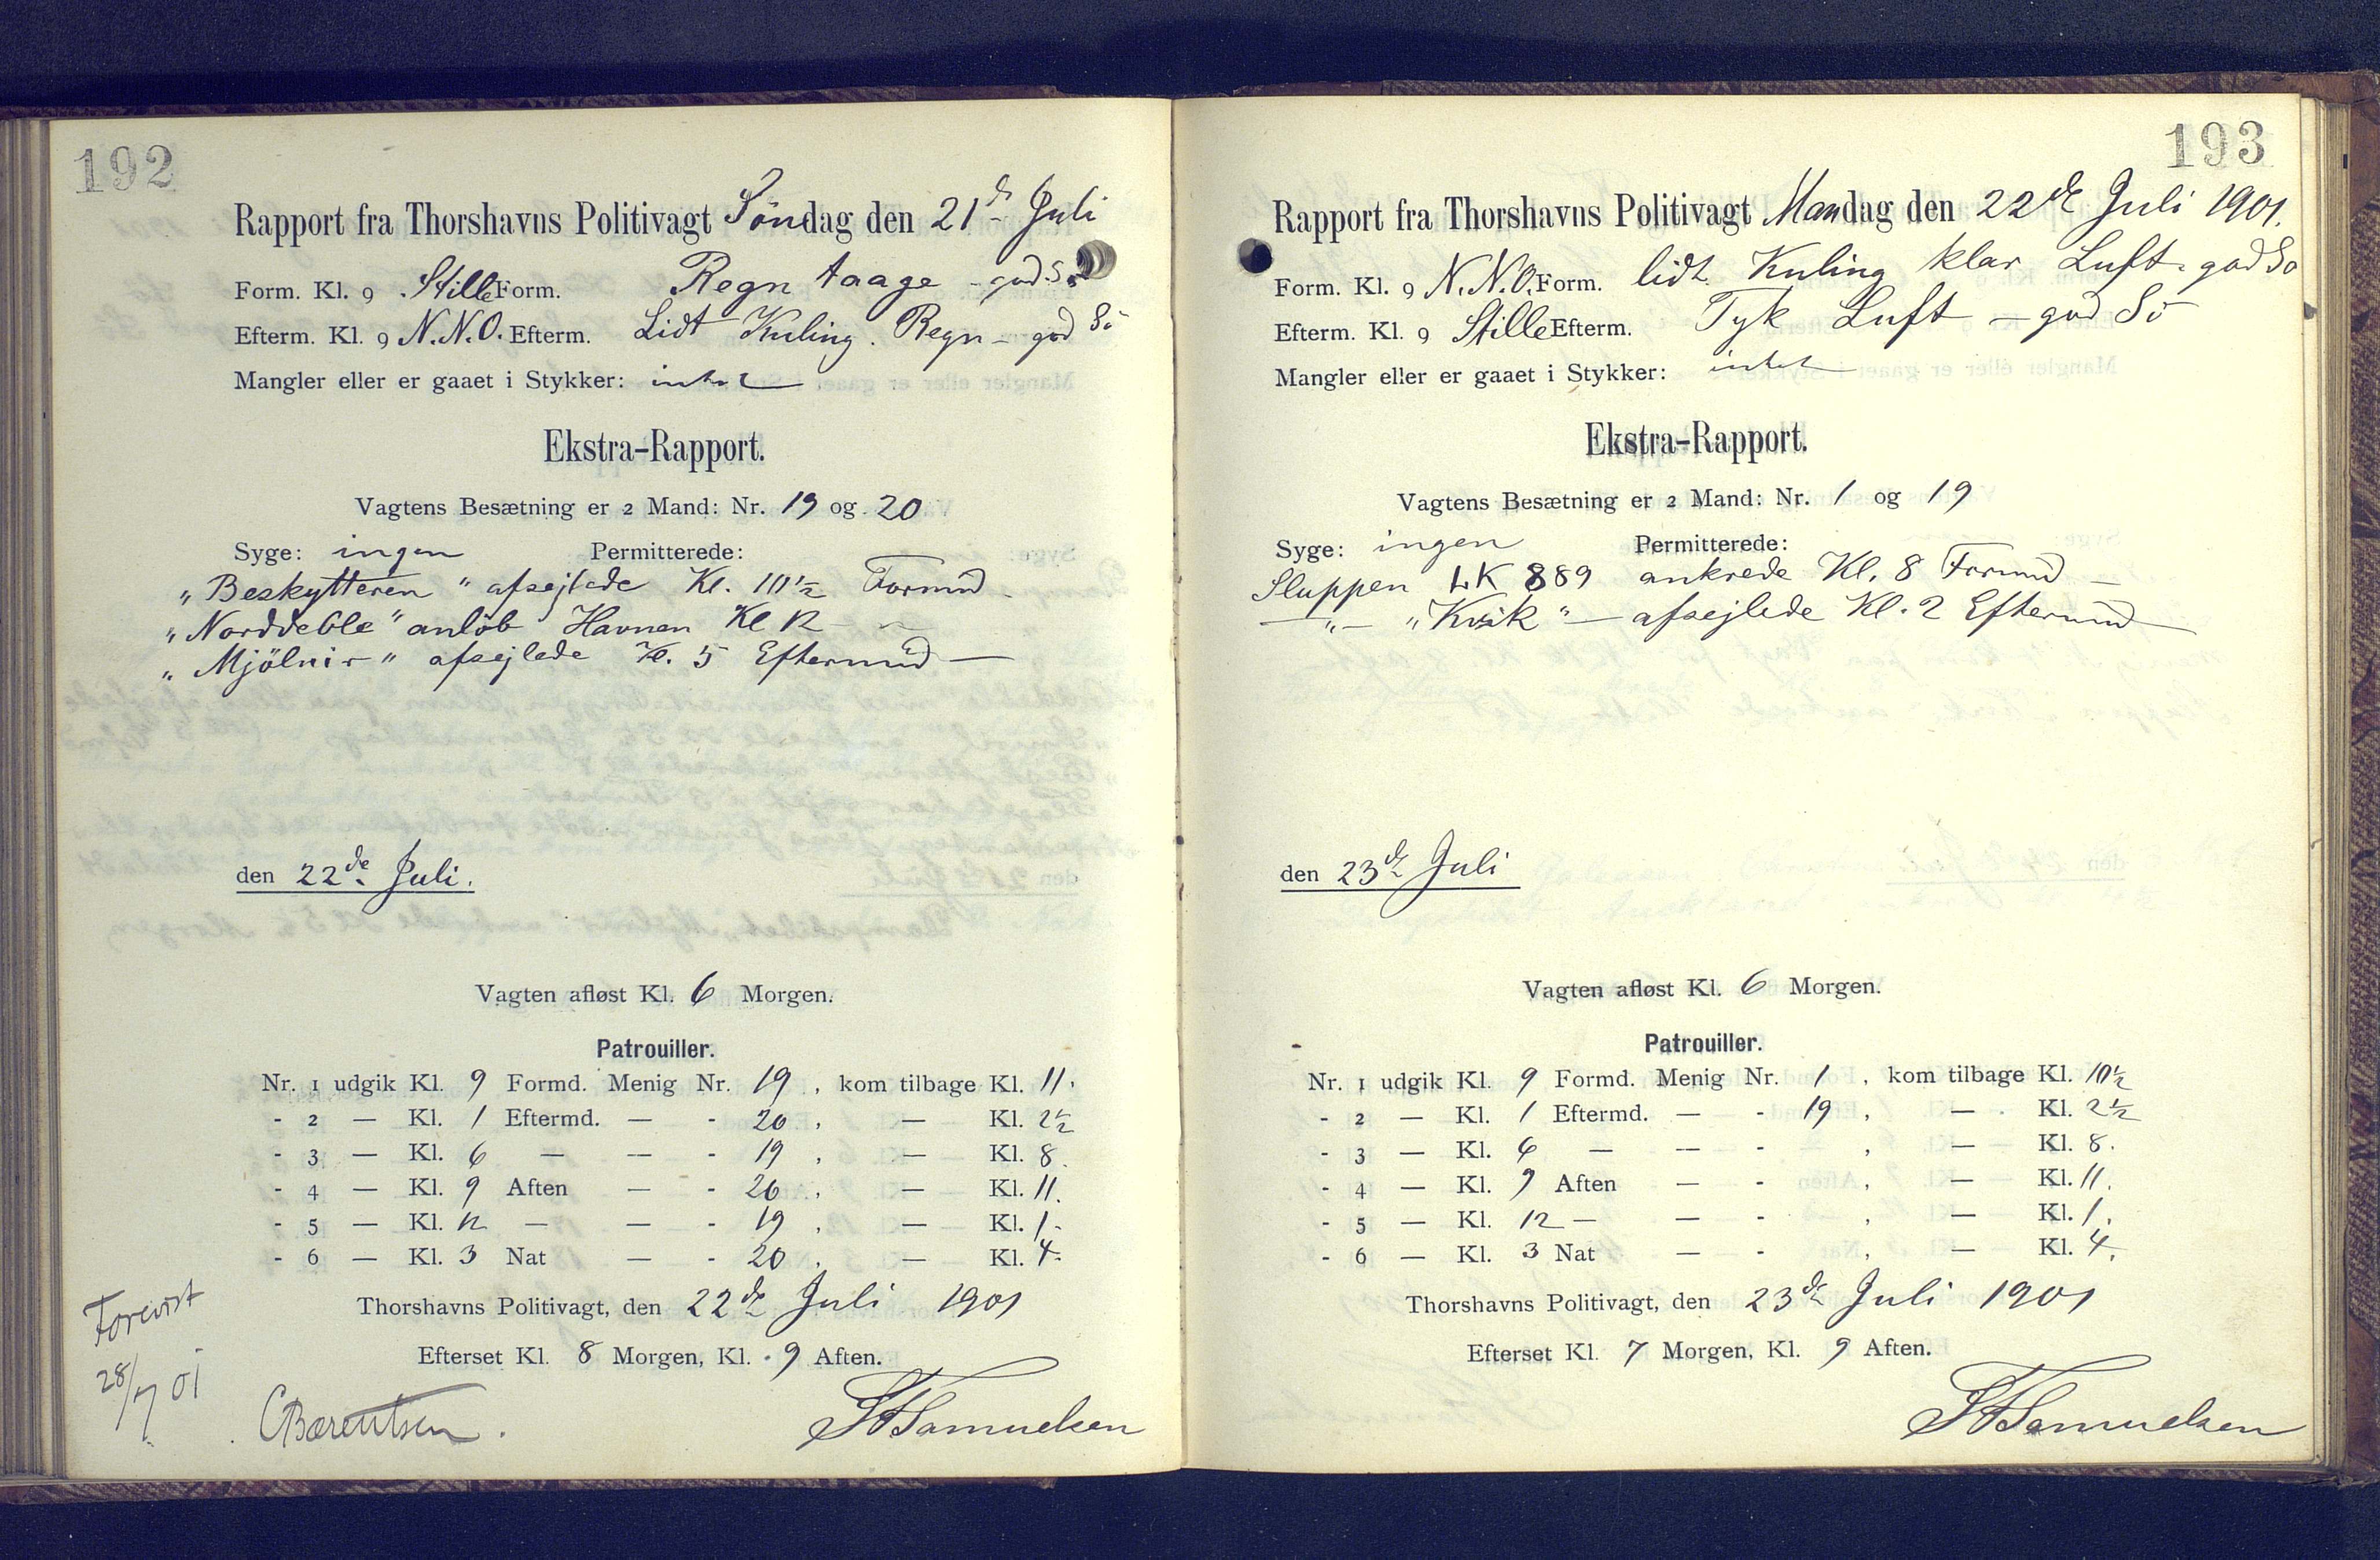 192
Rapport fra Thorshavns Politivagt Söndag den 21de Juli
Form. Kl. 9 Stille Form. Regn taage - god Sö
Efterm. Kl. 9 N.N.O. Efterm. Lidt Kuling. Regn - god Sö
Mangler eller er gaaet i Stykker: intet
Ekstra-Rapport.
Vagtens Besætning er 2 Mand: Nr. 19 og 20
Syge: ingen Permitterede:
„Beskytteren“ afsejlede Kl. 10½ Formd
„Norddeble“ anlöb Havnen Kl 12 - „ -
„Mjölnir“ afsejlede Kl. 5 Eftermd —
den 22de Juli.
Vagten afløst Kl. 6 Morgen.
Patrouiller.
Nr. 1 udgik Kl. 9 Formd. Menig Nr. 19, kom tilbage Kl. 11.
- 2 — Kl. 1 Eftermd. — - 20, — Kl. 2½
- 3 — Kl. 6 — — - 19, — Kl. 8.
- 4 — Kl. 9 Aften — - 20, — Kl. 11.
- 5 — Kl. 12 — — - 19, — Kl. 1.
- 6 — Kl. 3 Nat — - 20, — Kl. 4.
Thorshavns Politivagt, den 22de Juli 1901
Efterset Kl. 8 Morgen, Kl. 9 Aften.
Forevist
28/7 01
CBærentsen.
Samuelsen
193
Rapport fra Thorshavns Politivagt Mandag den 22de Juli 1901.
Form. Kl. 9 N.N.O. Form. lidt Kuling klar Luft - god Sö
Efterm. Kl. 9 Stille Efterm. Tyk Luft — god Sö
Mangler eller er gaaet i Stykker: intet
Ekstra-Rapport.
Vagtens Besætning er 2 Mand: Nr. 1 og 19
Syge: ingen Permitterede:
Sluppen LK 889 ankrede Kl. 8 Formd —
— „ — „Kvik“ — afsejlede Kl. 2 Eftermd —
den 23de Juli
Vagten afløst Kl. 6 Morgen.
Patrouiller.
Nr. 1 udgik Kl. 9 Formd. Menig Nr. 1, kom tilbage Kl. 10½
- 2 — Kl. 1 Eftermd. — - 19, — Kl. 2½
- 3 — Kl. 6 — — - , — Kl. 8.
- 4 — Kl. 9 Aften — - , — Kl. 11.
- 5 — Kl. 12 — — - , — Kl. 1.
- 6 — Kl. 3 Nat — - , — Kl. 4.
Thorshavns Politivagt, den 23de Juli 1901
Efterset Kl. 7 Morgen, Kl. 9 Aften.
Samuelsen